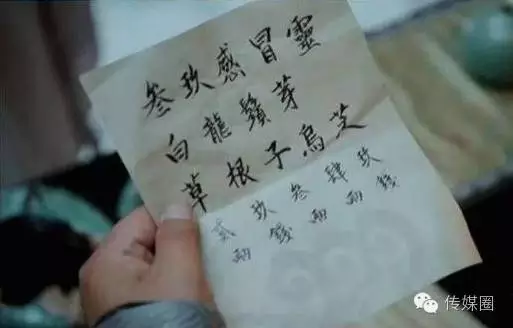 叁玖感冒靈
白龍鬚芽
草根子烏芝
貳玖叁肆玖
兩錢兩兩錢
传媒圈